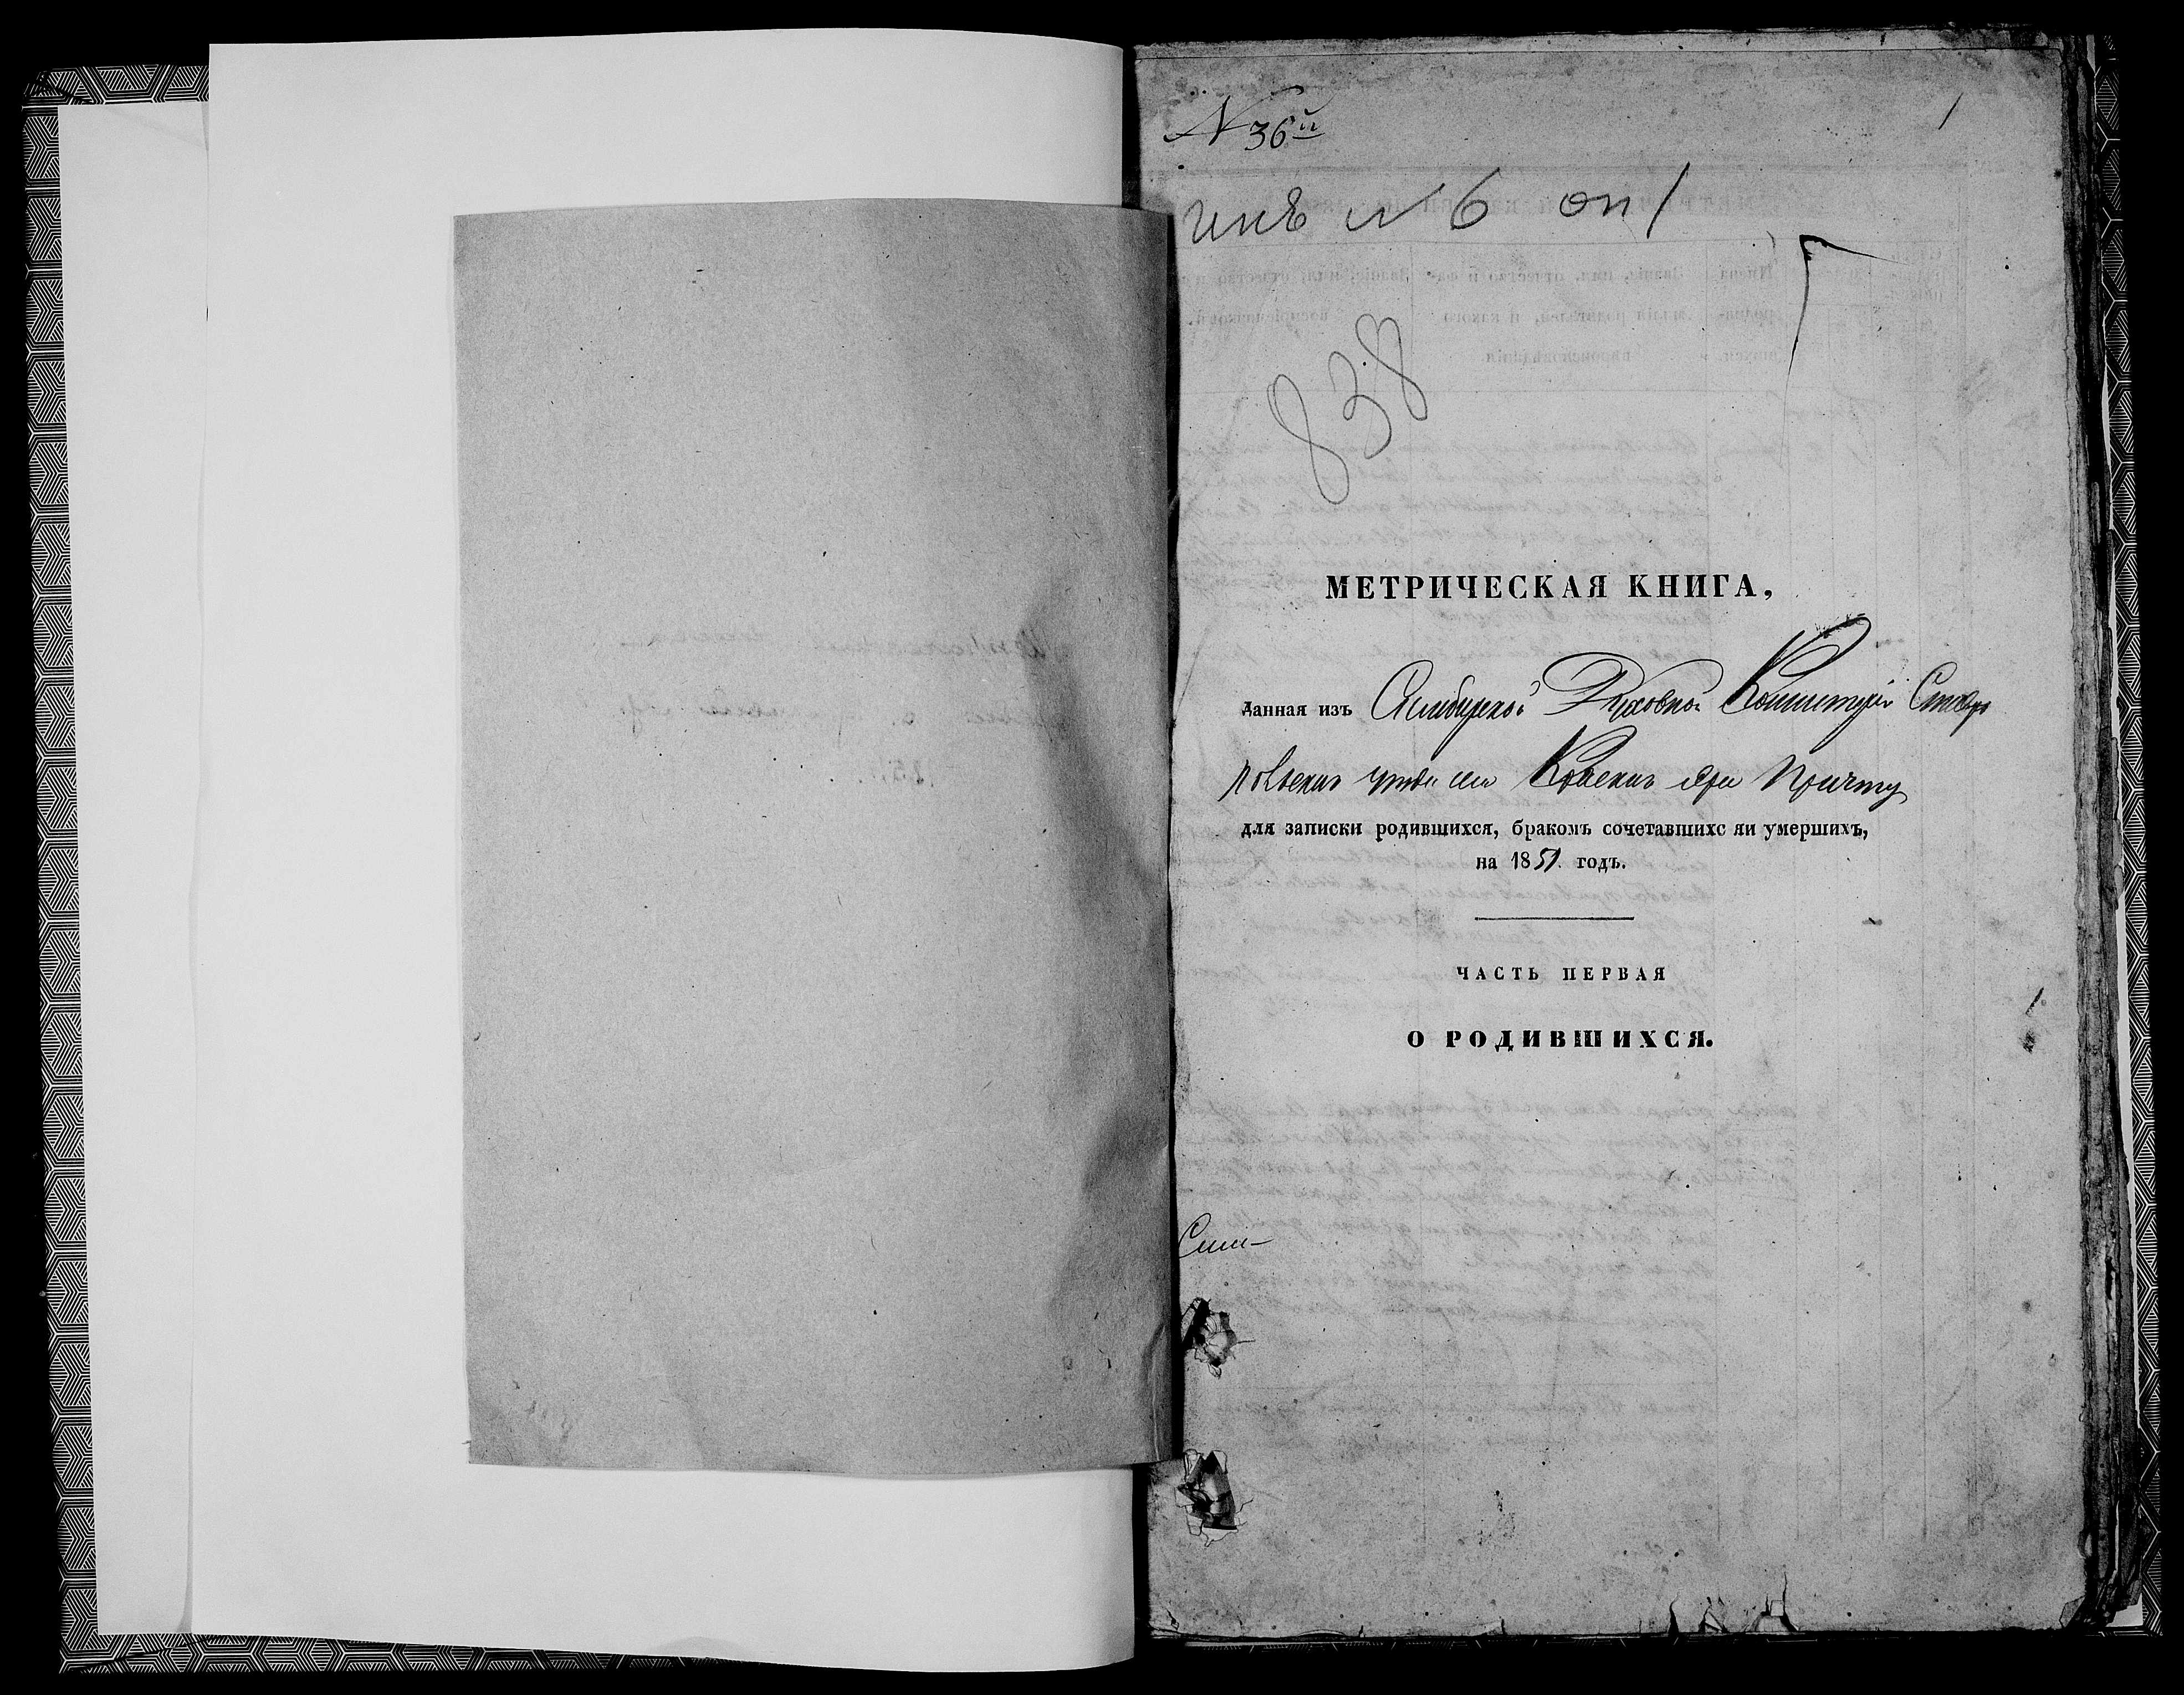 N 36й
1
инв N 6 оп 1
838
МЕТРИЧЕСКАЯ КНИГА,
данная изъ Симбирской Духовной Консисторіи Ставро
польскаго уезда села при Причту
для записки родившихся, бракомъ сочетавшихс яи умершихъ,
на 1851. годъ.
ЧАСТЬ ПЕРВАЯ
О РОДИВШИХСЯ.
Сим-